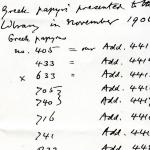 Greek papyri presented to the
Library in November 190
Greek papyrus
no. 405 = our Add. 441
433 = Add. 441
x 633 = Add. 441
705 Add. 44
740 }
716 Add. 44
741 Add. 44
Add. 44